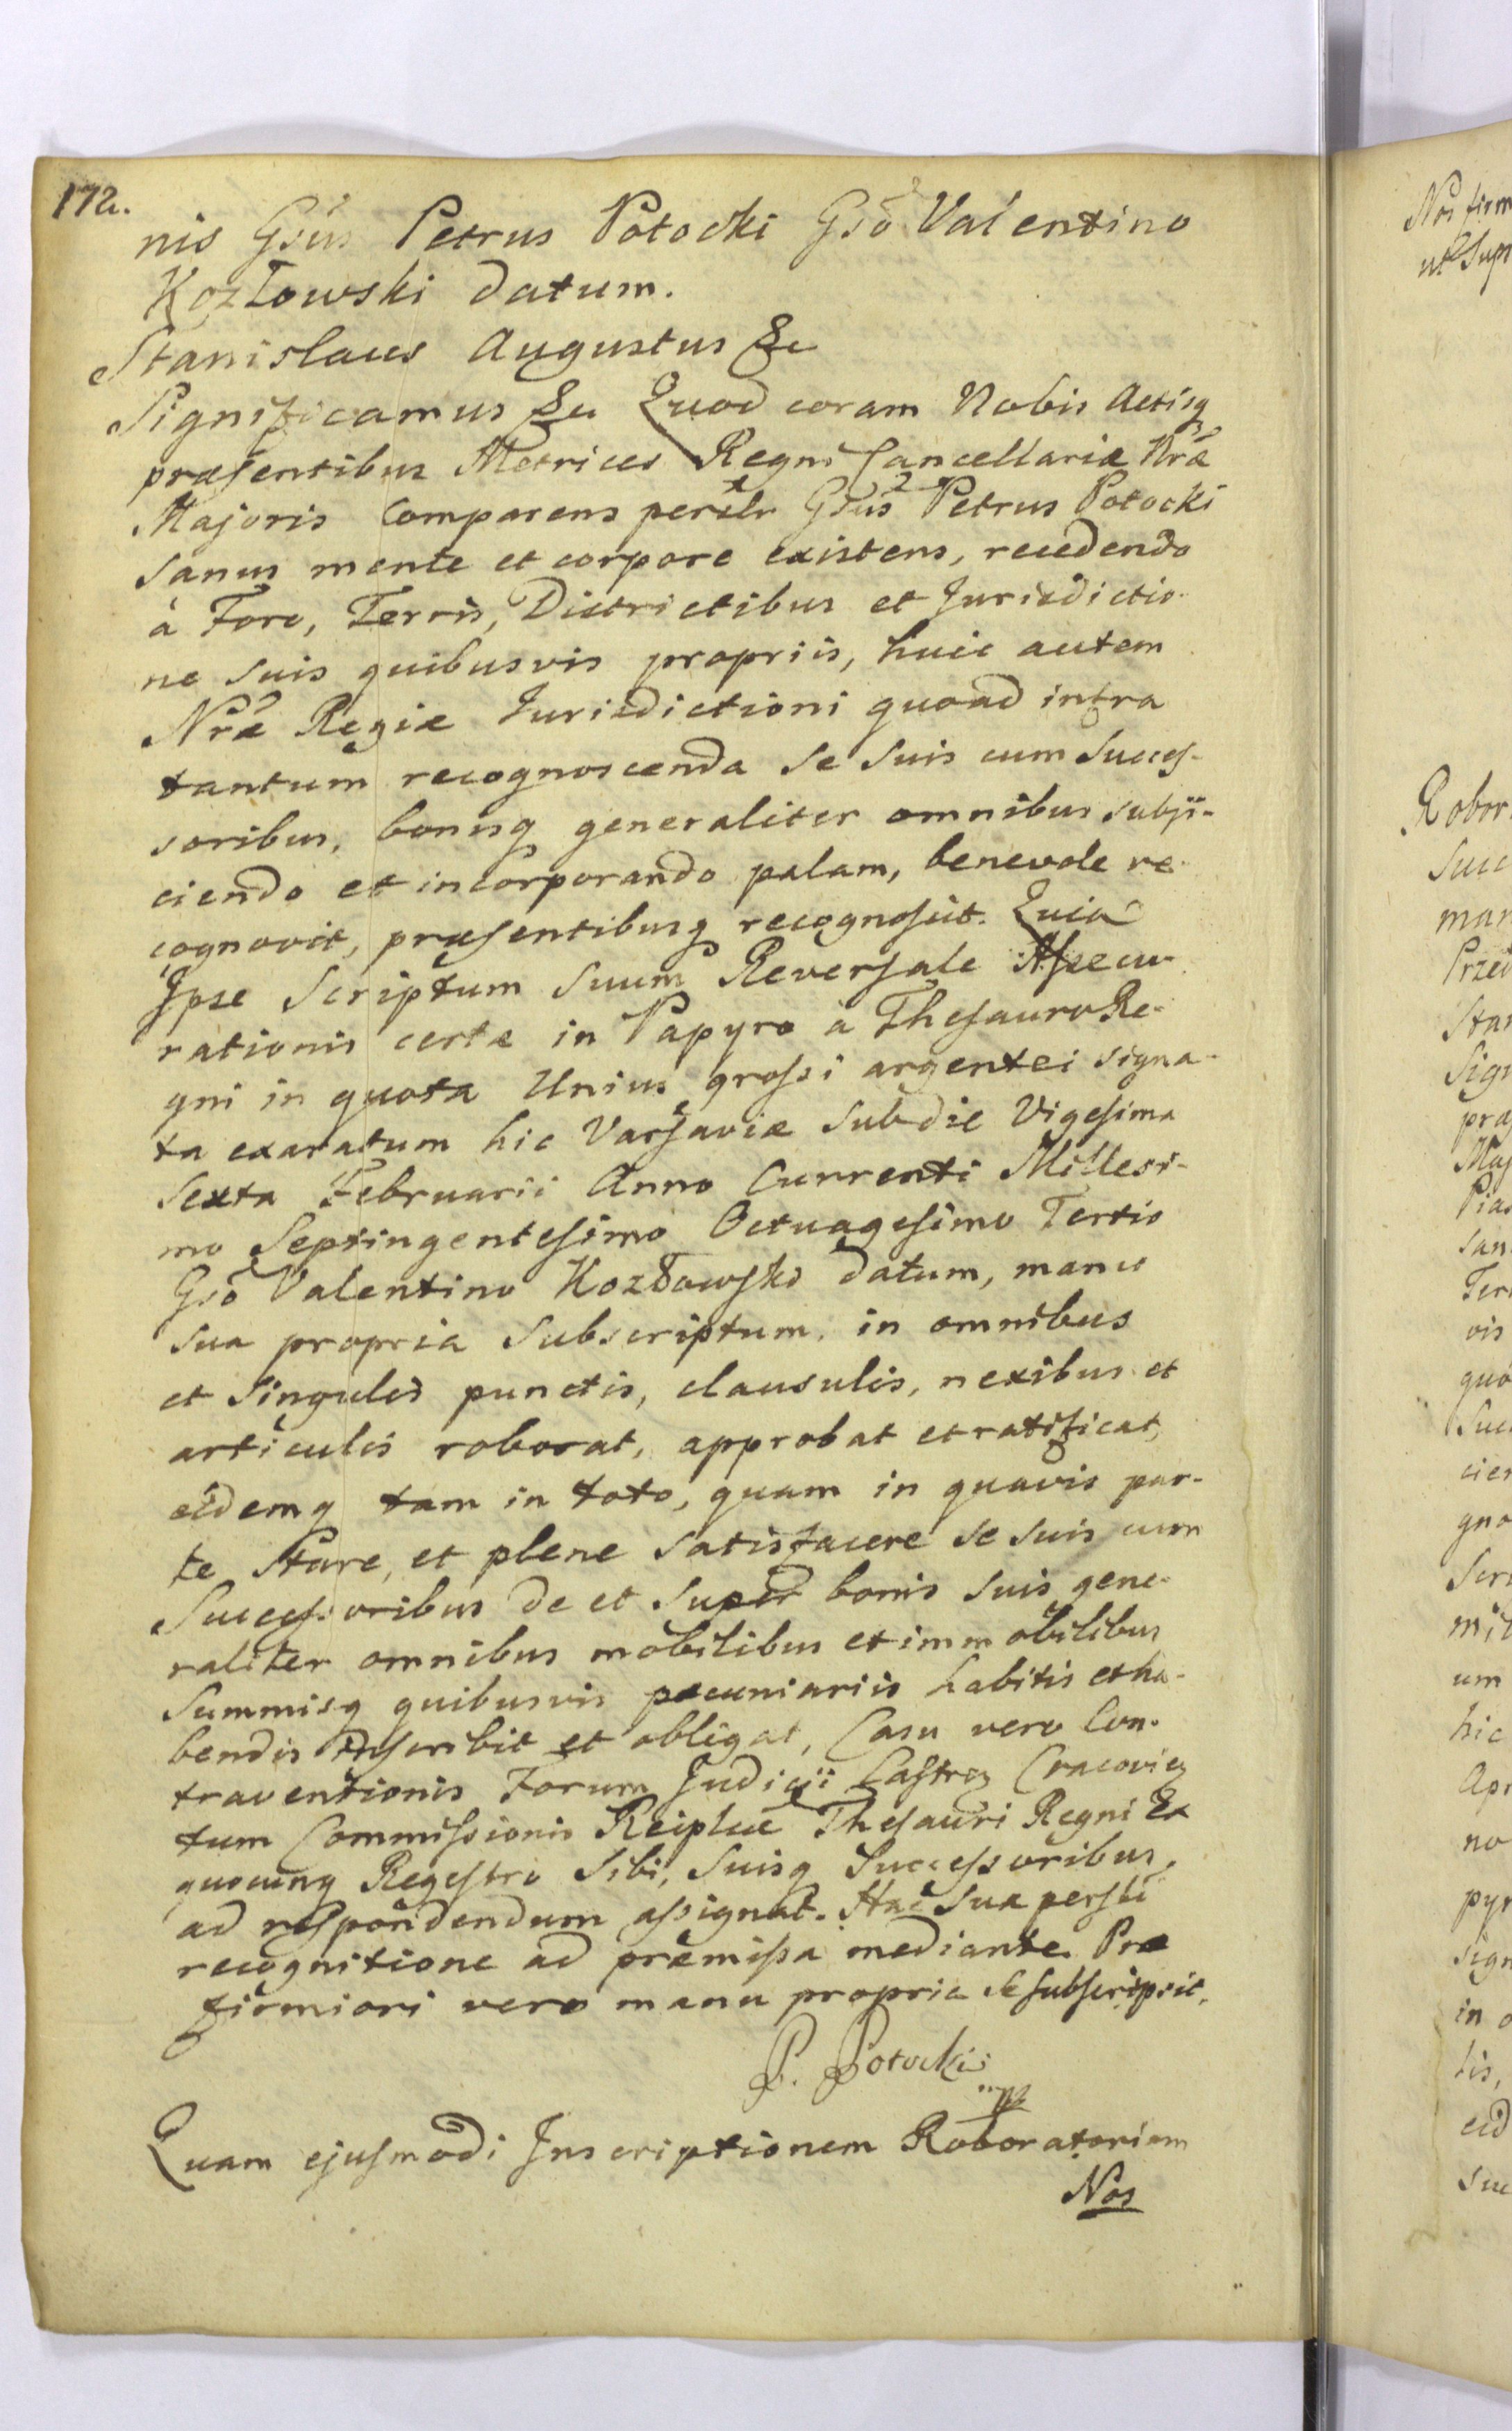 172.
nis Gsus Petrus Potocki Gso Valentino
Kozłowski datum.
Stanislaus Augustus &c
Significamus &c Quod coram Nobis Actisq
præsentibus Metrices Regni Cancellariæ Nræ
Majoris Comparens perslr Gsus Petrus Potocki
sanus mente et corpore existens, recedendo
à Foro, Terris, Districtibus et Jurisdictio-
ne suis quibusvis propriis, huic autem
Nræ Regiæ Jurisdictioni quoad infra
tantum recognoscenda se suis cum succes-
soribus, bonisq generaliter omnibus subji-
ciendo et incorporando palam, benevole re-
cognovit, præsentibusq recognoscit. Quia
Ipse Scriptum suum Reversale Assecu-
rationis certæ in Papyro a Thesauro Re-
gni in quota Unius grossi argentei signa-
ta exaratum hic Varsaviæ sub die Vigesima
Sexta Februarii Anno Currenti Millesi-
mo Septingentesimo Octuagesimo Tertio
Gso Valentino Kozłowski datum, manu
sua propria subscriptum, in omnibus
et singulis punctis, clausulis, nexibus et
articulis roborat, approbat et ratificat,
eidemq tam in toto, quam in quavis par-
te stare, et plene satisfacere se suis cum
Successoribus de et super bonis suis gene-
raliter omnibus mobilibus et immobilibus
Summisq quibusvis pecuniariis habitis et ha-
bendis inscribit et obligat, Casu vero Con-
traventionis Forum Judicii Castren Cracovien
tum Commissionis Reiplcæ Thesauri Regni Ex
quocunq Regestro sibi, suisq Successoribus,
ad respondendum assignat. Hac sua persli
recognitione ad præmissa mediante. Pro
firmiori vero manu propria se subscripsit.
P. Potocki
mp
Quam ejusmodi Inscriptionem Roboratoriam
Nos
Nos firm
ut supr
Robor
succ
man
Przed
Stan
Sign
præs
Maj
Pias
san
Terr
vis
quo
Suc
cien
gno
Scri
um
hic
Apr
no
pyr
sign
in o
tis,
eid
suc